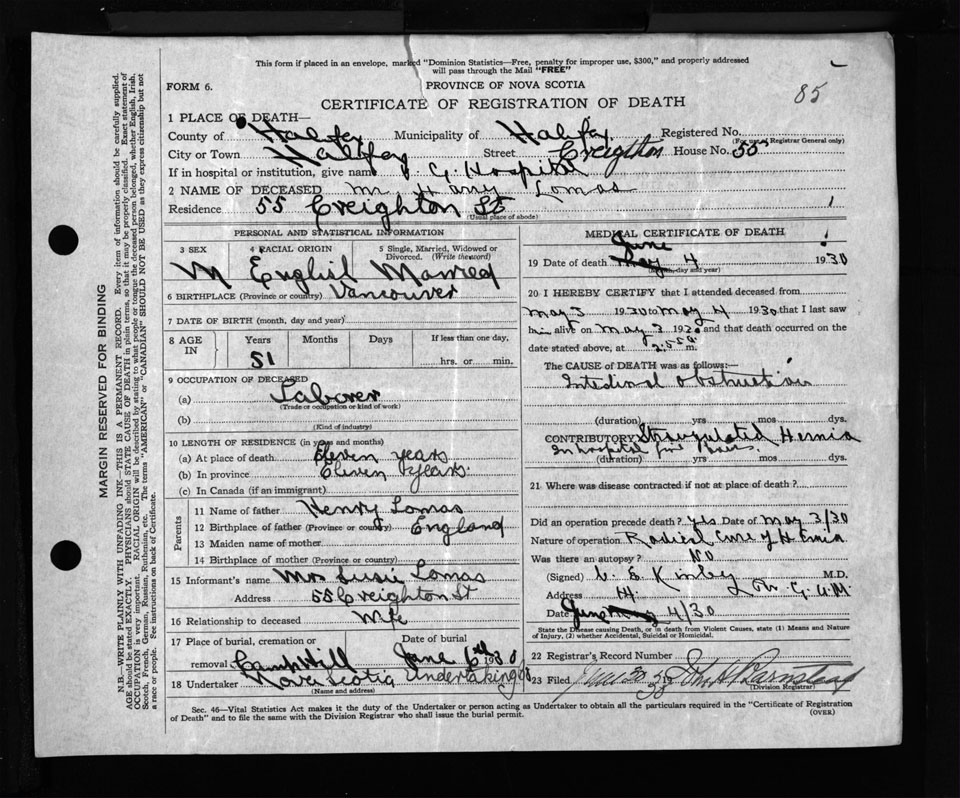 This form if placed in an envelope, marked "Dominion Statistics—Free, penalty for improper use, $300," and properly addressed
will pass through the Mail "FREE"
85
FORM 6.
PROVINCE OF NOVA SCOTIA
CERTIFICATE OF REGISTRATION OF DEATH
1 PLACE OF DEATH—
County of Halifax Municipality of Halifax Registered No.
(For use of Registrar General only)
City or Town Halifax Street Creighton House No. 55
If in hospital or institution, give name V. G. Hospital
2 NAME OF DECEASED Mr Harry Lomas
Residence 55 Creighton St
(Usual place of abode)
PERSONAL AND STATISTICAL INFORMATION
3 SEX 4 RACIAL ORIGIN 5 Single, Married, Widowed or Divorced. (Write the word)
M English Married
6 BIRTHPLACE (Province or country) Vancouver
7 DATE OF BIRTH (month, day and year)
8 AGE IN Years Months Days If less than one day,
51 hrs. or min.
9 OCCUPATION OF DECEASED
(a) Laborer
(Trade or occupation or kind of work)
(b)
(Kind of industry)
10 LENGTH OF RESIDENCE (in years and months)
(a) At place of death Eleven years
(b) In province Eleven years
(c) In Canada (if an immigrant)
Parents
11 Name of father Henry Lomas
12 Birthplace of father (Province or country) England
13 Maiden name of mother
14 Birthplace of mother (Province or country)
15 Informant's name Mrs Susie Lomas
Address 55 Creighton St
16 Relationship to deceased Wife
17 Place of burial, cremation or removal Camp Hill
Date of burial June 6th 1930
18 Undertaker Nova Scotia Undertaking Co
(Name and address)
MEDICAL CERTIFICATE OF DEATH
June
19 Date of death May 4 1930
(Month, day and year)
20 I HEREBY CERTIFY that I attended deceased from
May 3 1930 to May 4 1930 that I last saw
him alive on May 3 1930 and that death occurred on
date stated above, at 2:55 a m.
The CAUSE OF DEATH was as follows:—
Intestinal obstruction
(duration) yrs mos dys.
CONTRIBUTORY Strangulated Hernia
In hospital five hours.
(duration) yrs. mos. dys.
21 Where was disease contracted if not at place of death?
Did an operation precede death? yes Date of May 3/30
Nature of operation Radical Cure of Hernia
Was there an autopsy? No
(Signed) V. E. Kinley M.D.
Address
Date June May 4/30
State the Disease causing Death, or in death from Violent Causes, state (1) Means and Nature
of Injury, (2) whether Accidental, Suicidal or Homicidal.
22 Registrar's Record Number
23 Filed June 30 1930
(Division Registrar)
Sec. 46—Vital Statistics Act makes it the duty of the Undertaker or person acting as Undertaker to obtain all the particulars required in the "Certificate of Registration
of Death" and to file the same with the Division Registrar who shall issue the burial permit.
(OVER)
MARGIN RESERVED FOR BINDING
N.B.—WRITE PLAINLY WITH UNFADING INK—THIS IS A PERMANENT RECORD. Every item of information should be carefully supplied.
AGE should be stated EXACTLY. PHYSICIANS should STATE CAUSE OF DEATH in plain terms, so that it may be properly classified. Exact statement of
OCCUPATION is very important. RACIAL ORIGIN will be described by stating to what people or tongue the deceased person belonged, whether English, Irish,
Scotch, French, German, Russian, Ruthenian, etc. The terms "AMERICAN" or "CANADIAN" SHOULD NOT BE USED as they express citizenship but not
a race or people. See instructions on back of Certificate.